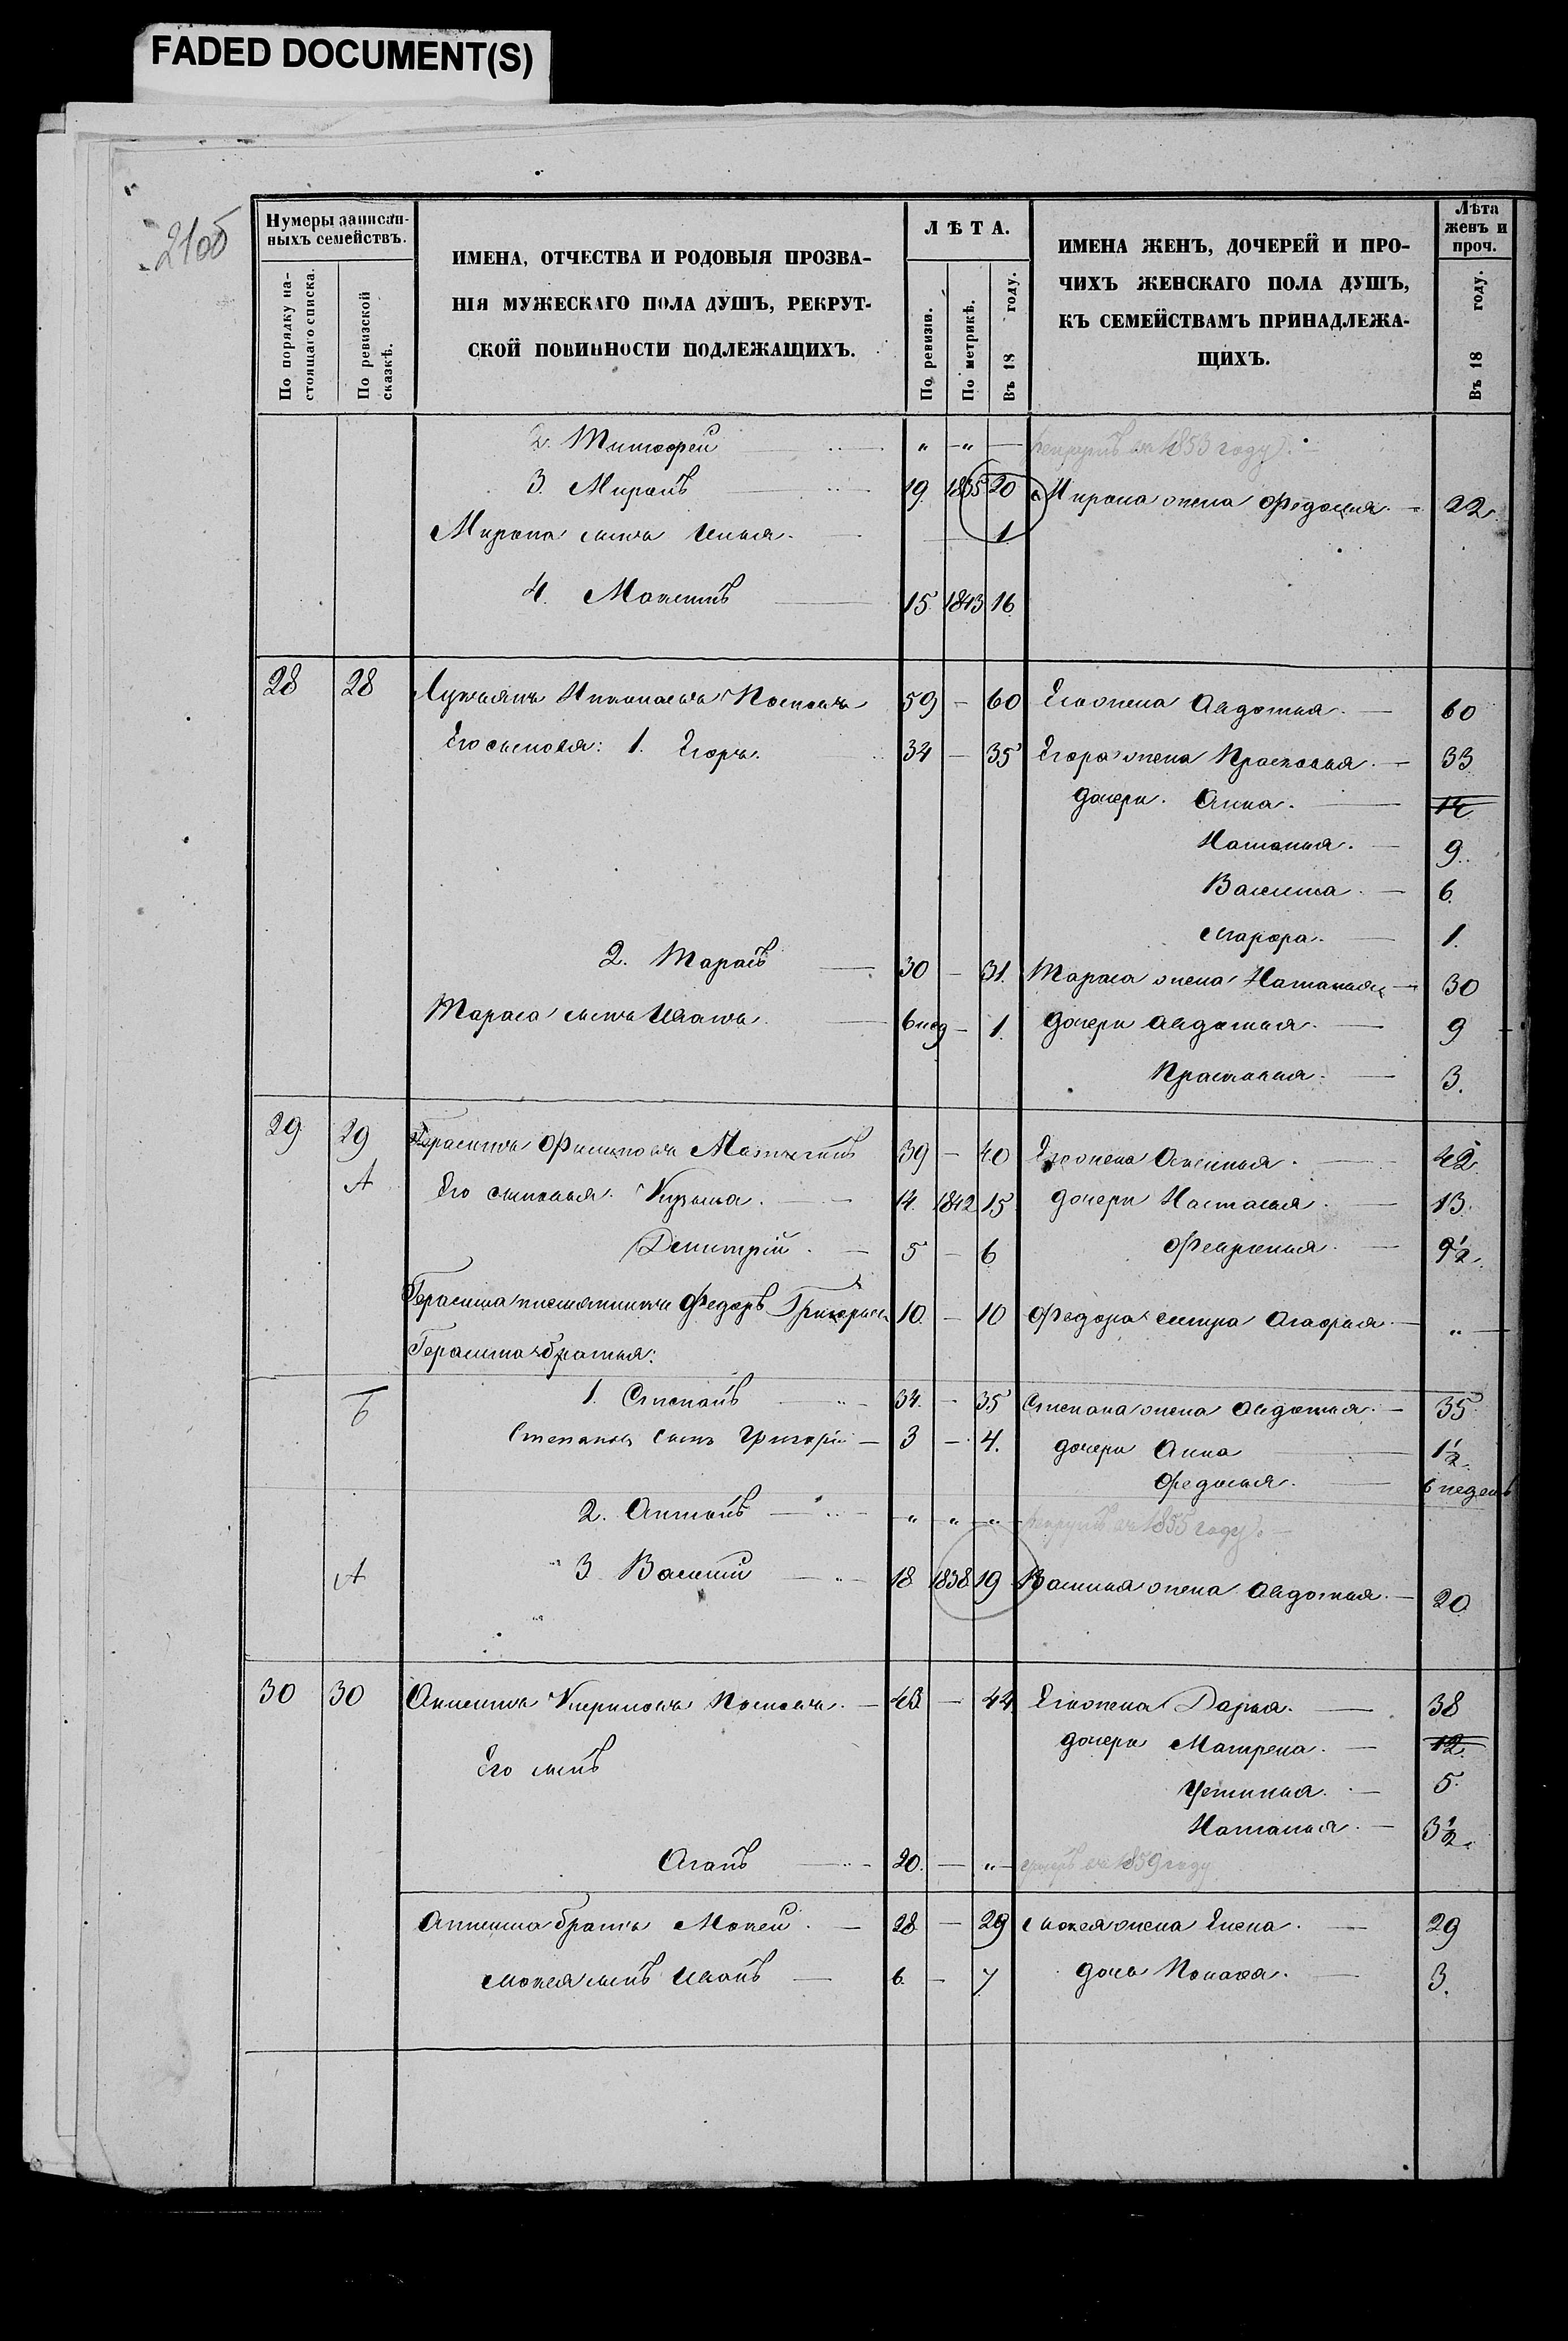 FADED DOCUMENT(S)
21об
Нумеры записан-
ныхъ семействъ.
По порядку на-
стоящаго списка.
По ревизской
сказкѣ.
ИМЕНА, ОТЧЕСТВА И РОДОВЫЯ ПРОЗВА-
НІЯ МУЖЕСКАГО ПОЛА ДУШЪ, РЕКРУТ-
СКОЙ ПОВИННОСТИ ПОДЛЕЖАЩИХЪ.
ЛѢТА.
По ревизіи.
По метрикѣ.
Въ 18 году.
ИМЕНА ЖЕНЪ, ДОЧЕРЕЙ И ПРО-
ЧИХЪ ЖЕНСКАГО ПОЛА ДУШЪ,
КЪ СЕМЕЙСТВАМЪ ПРИНАДЛЕЖА-
ЩИХЪ.
Лѣта
женъ и
проч.
Въ 18 году.
2. Тимофей " " — рекрутъ въ 1853 году.
3. Миронъ 19. 1835 20 Мирона жена Федосья 22
Мирона сынъ Илья. 1
4. Мокей 15 1843 16
28 28 Лукьянъ 59 — 60 Его жена Авдотья. 60
Его сыновья: 1. Егоръ. 34 — 35 Егора жена Прасковья. 33
дочери. Анна. 12
Наталья. 9.
Василиса. 6.
Марфа. 1.
2. Тарасъ 30 — 31. Тараса жена Наталья 30
Тараса сынъ Иванъ 6 нед — 1. дочери Авдотья. 9
Прасковья. 3.
29 29 Герасимъ Филиповъ 39 — 40 Его жена Аксинья. 42
А Его сыновья. Кузьма. 14. 1842 15 дочери Настасья. 13.
Дмитрій. 5 — 6 Февронья. 9½
Герасима племянникъ Федоръ Григорьевъ 10. — 10 Федора сестра Агафья. "
Герасима братья:
Б 1. Степанъ 34. — 35 Степана жена Авдотья. 35
Степана сынъ Григорій 3 — 4. дочери Анна 1½
Федосья. 6 недель
2. Антонъ " " " рекрутъ въ 1855 году.
А 3 Василій 18 1838 19 Василья жена Авдотья. 20
30 30 43 — 44 Его жена Дарья. 38
дочери Матрена. 12.
Его сынъ
Устинья. 5.
Наталья. 3½
Агапъ 20. — " умеръ въ 1859 году
братъ Мокей. 28 — 29 Мокея жена Елена. 29
Мокея сынъ Иванъ 6. — 7 дочь 3.